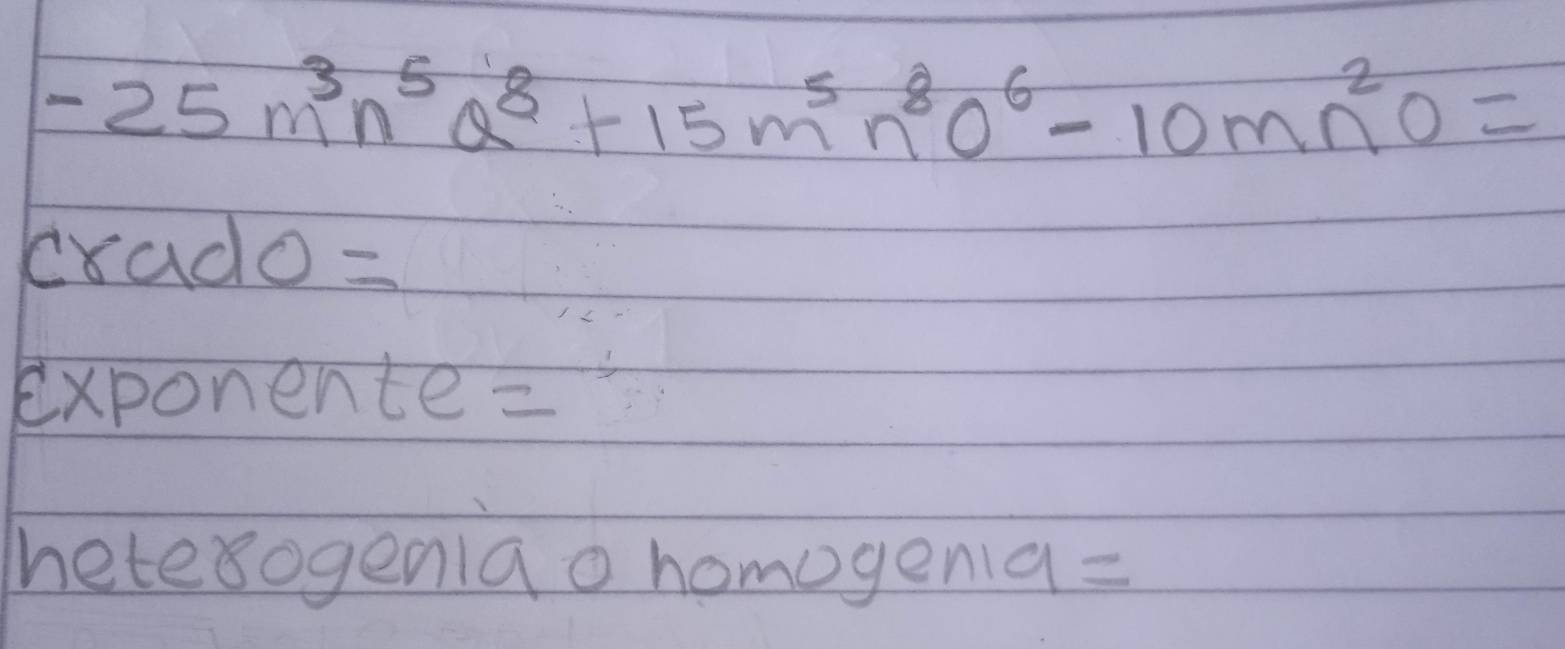 -25m³n⁵a⁸+15m⁵n⁸o⁶-10mn²o=
Grado=
Exponente=
heterogenia o homogenia=